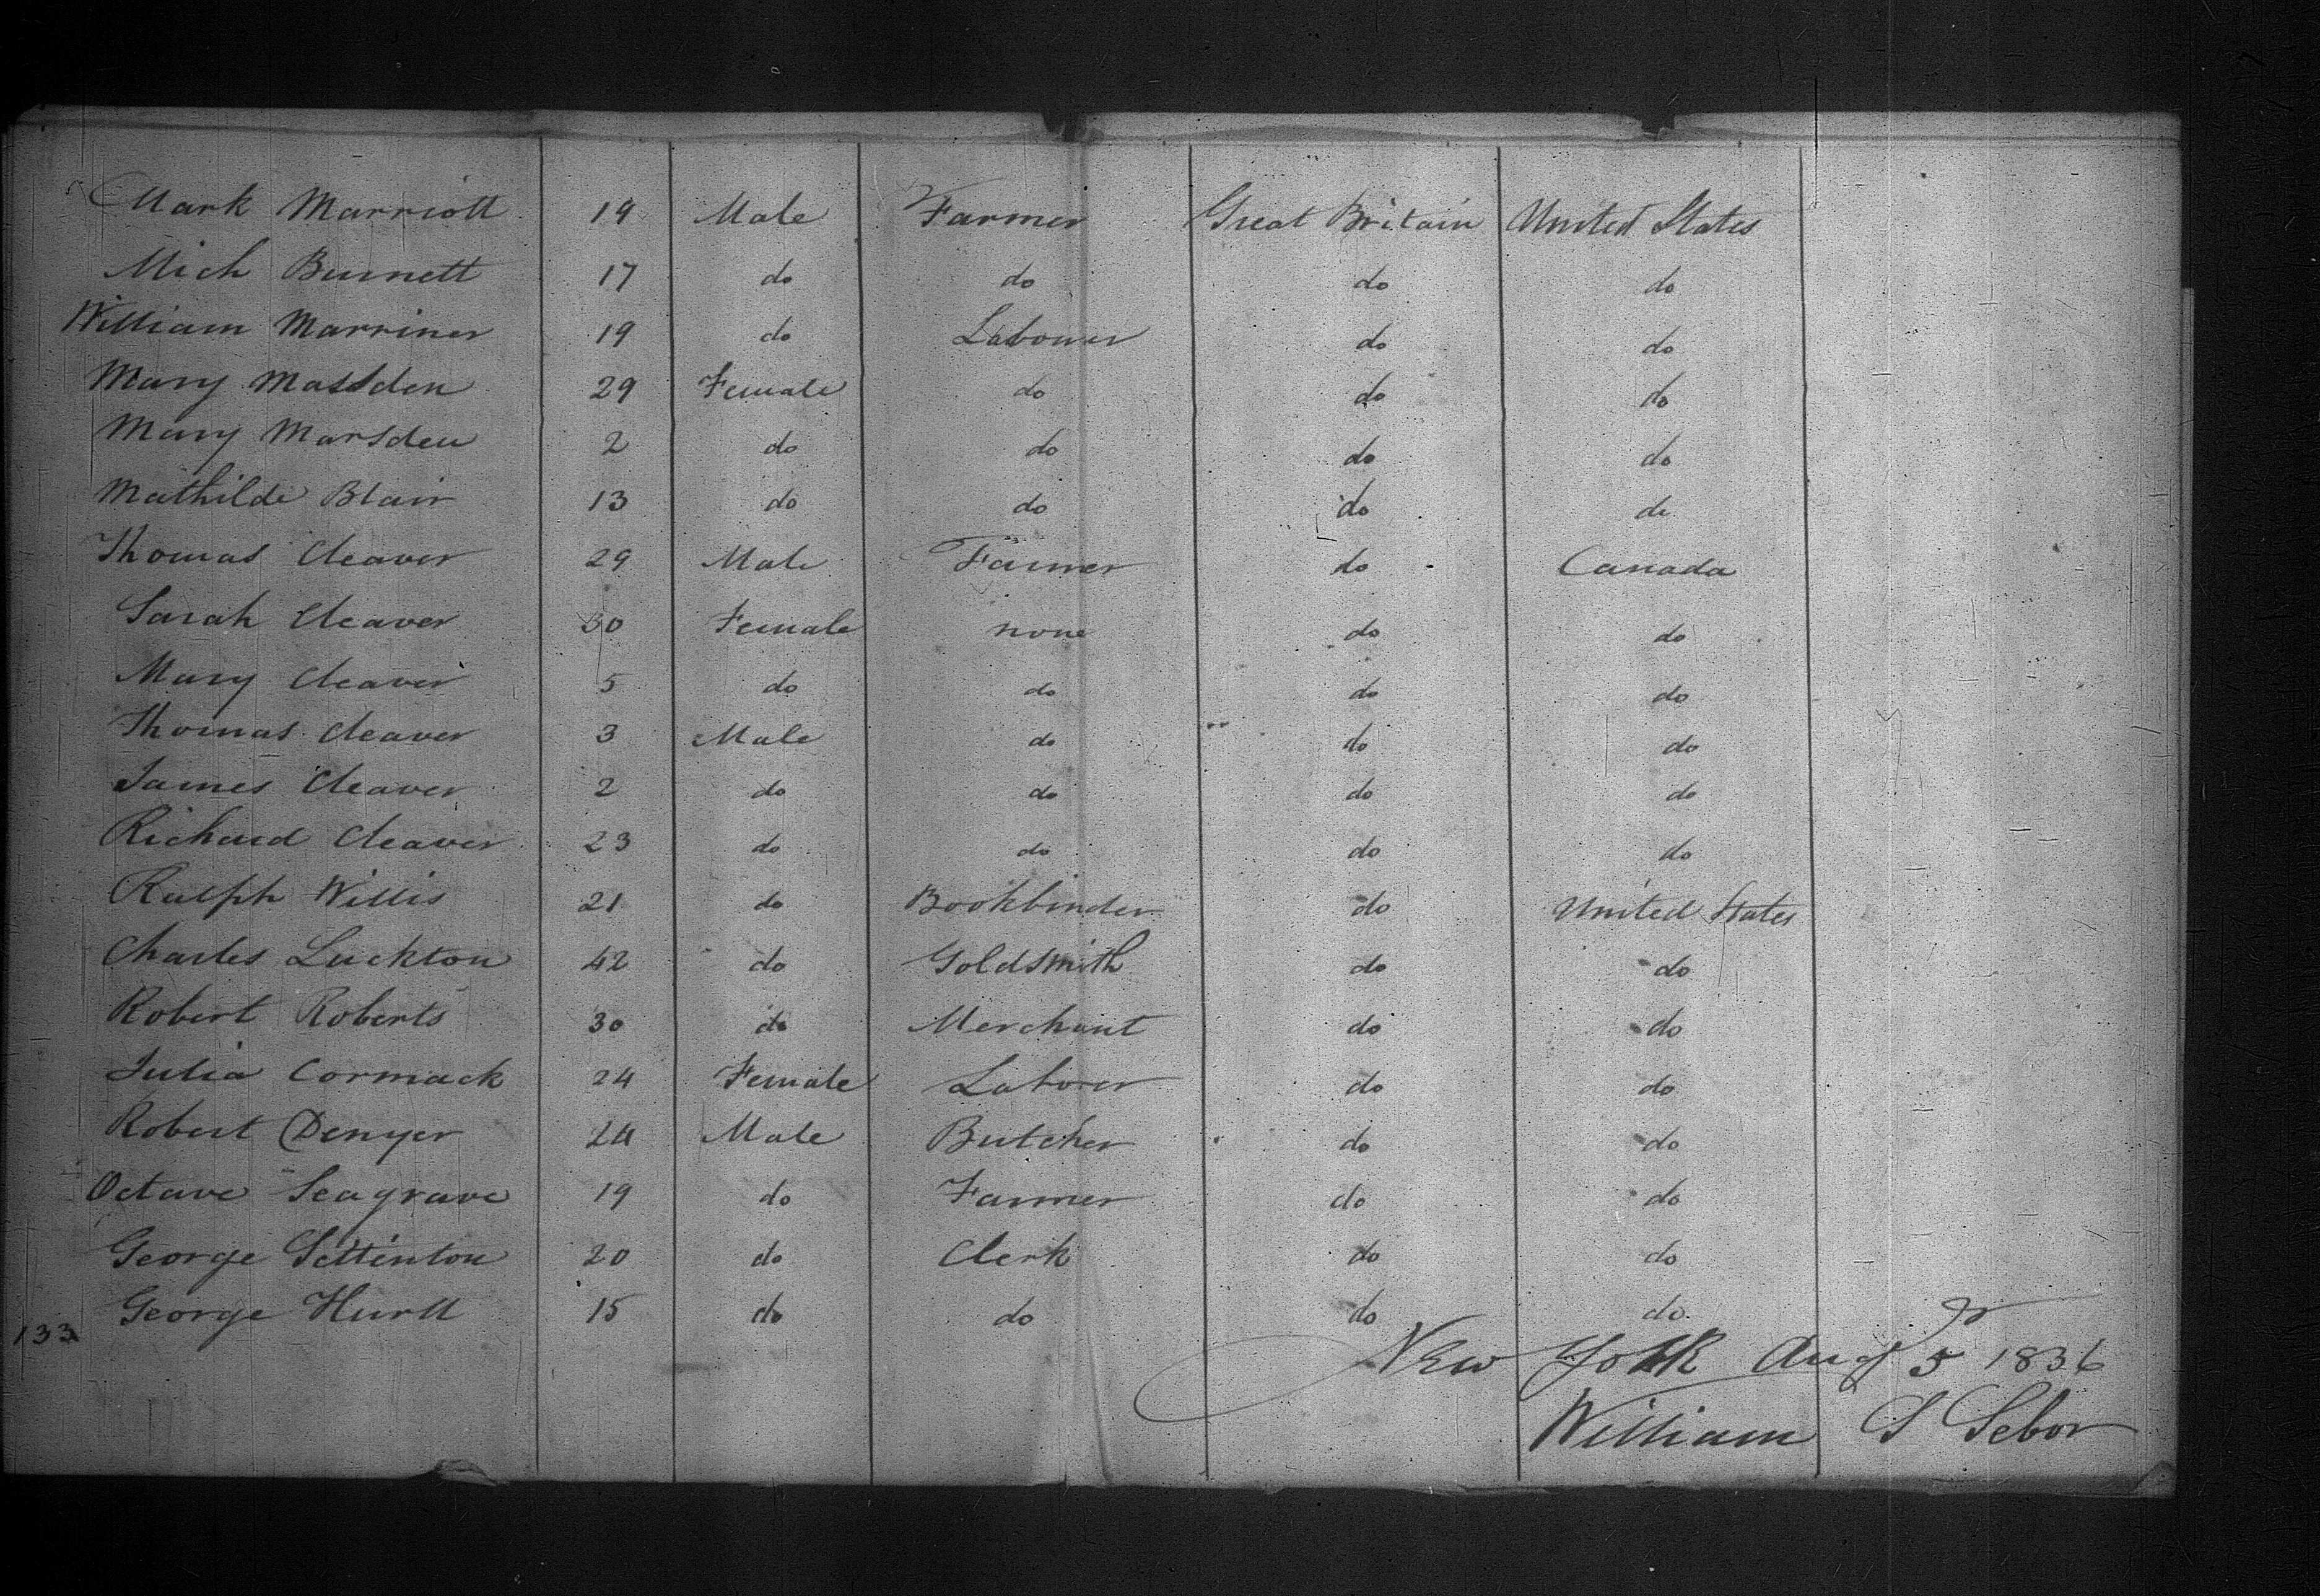 Mark Marriott 19 Male Farmer Great Britain United States
Mich Burnett 17 do do do do
William Marriner 19 do Labourer do do
Mary Massden 29 Female do do do
Mary Marsden 2 do do do do
Mathilde Blair 13 do do do do
Thomas Cleaver 29 Male Farmer do Canada
Sarah Cleaver 30 Female none do do
Mary Cleaver 5 do do do do
Thomas Cleaver 3 Male do do do
James Cleaver 2 do do do do
Richard Cleaver 23 do do do do
Ralph Willis 21 do Bookbinder do United States
Charles Luckton 42 do Goldsmith do do
Robert Roberts 30 do Merchant do do
Julia Cormack 24 Female Laborer do do
Robert Denyer 24 Male Butcher do do
Octave Seagrave 19 do Farmer do do
George Settinton 20 do Clerk do do
George Hurll 15 do do do do
133
New York Aug 5 1836
William S Sebor